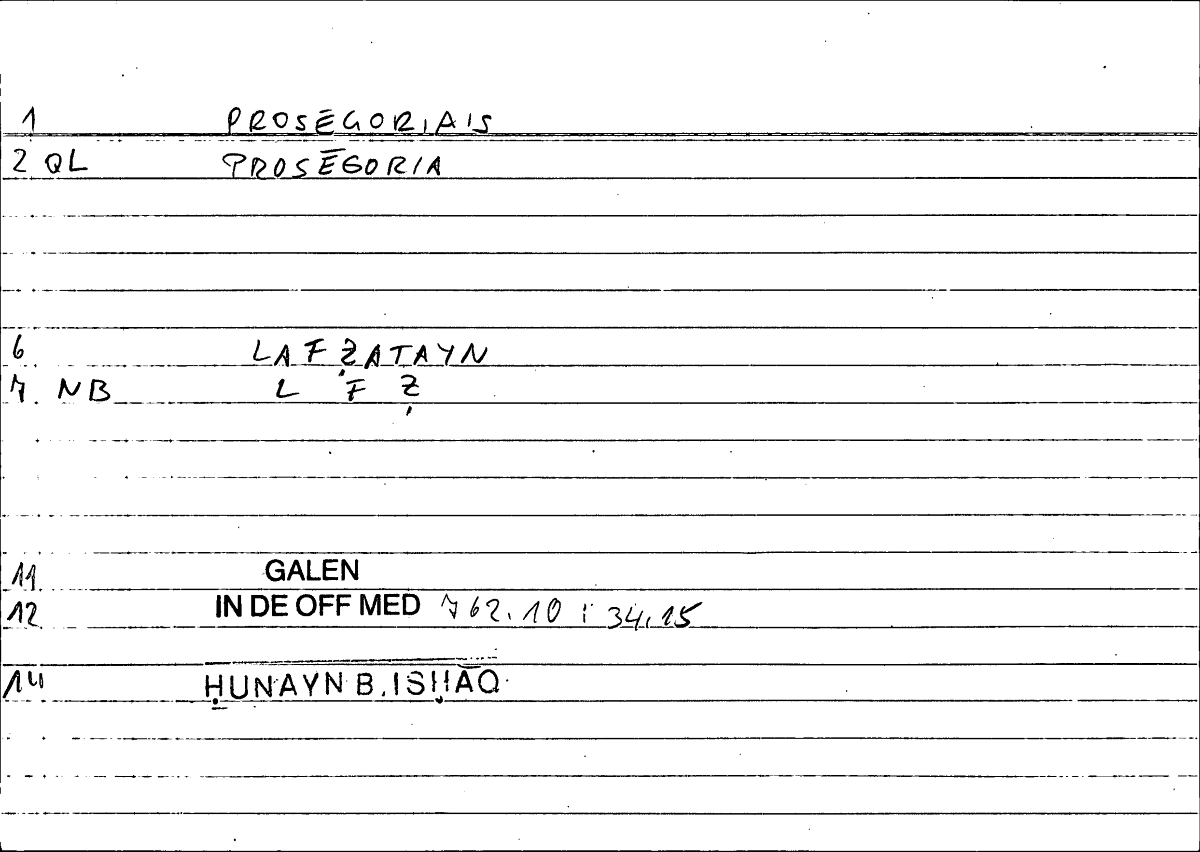 1 PROSĒGORIAIS
2 QL PROSĒGORIA
6 LAFẒATAYN
7 NB L F Ẓ
11 GALEN
12 IN DE OFF MED 762.10 : 34.15
14 ḤUNAYN B. ISḤĀQ